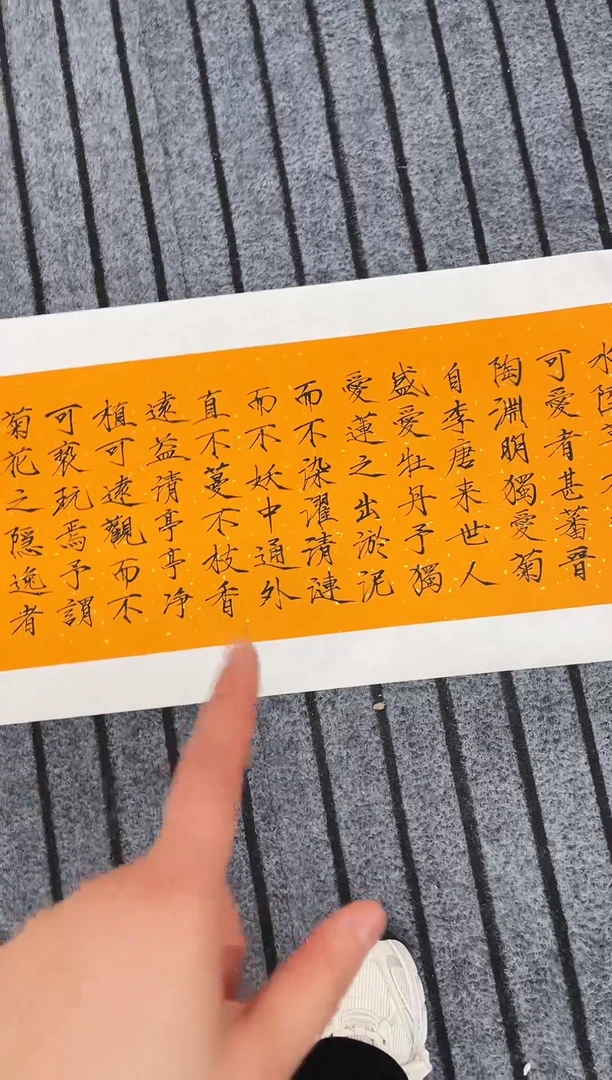 水陸
可愛者甚蕃晉
陶淵明獨愛菊
自李唐来世人
盛愛牡丹予獨
愛蓮之出淤泥
而不染濯清漣
而不妖中通外
直不蔓不枝香
遠益清亭亭净
植可遠觀而不
可褻玩焉予謂
菊花之隱逸者